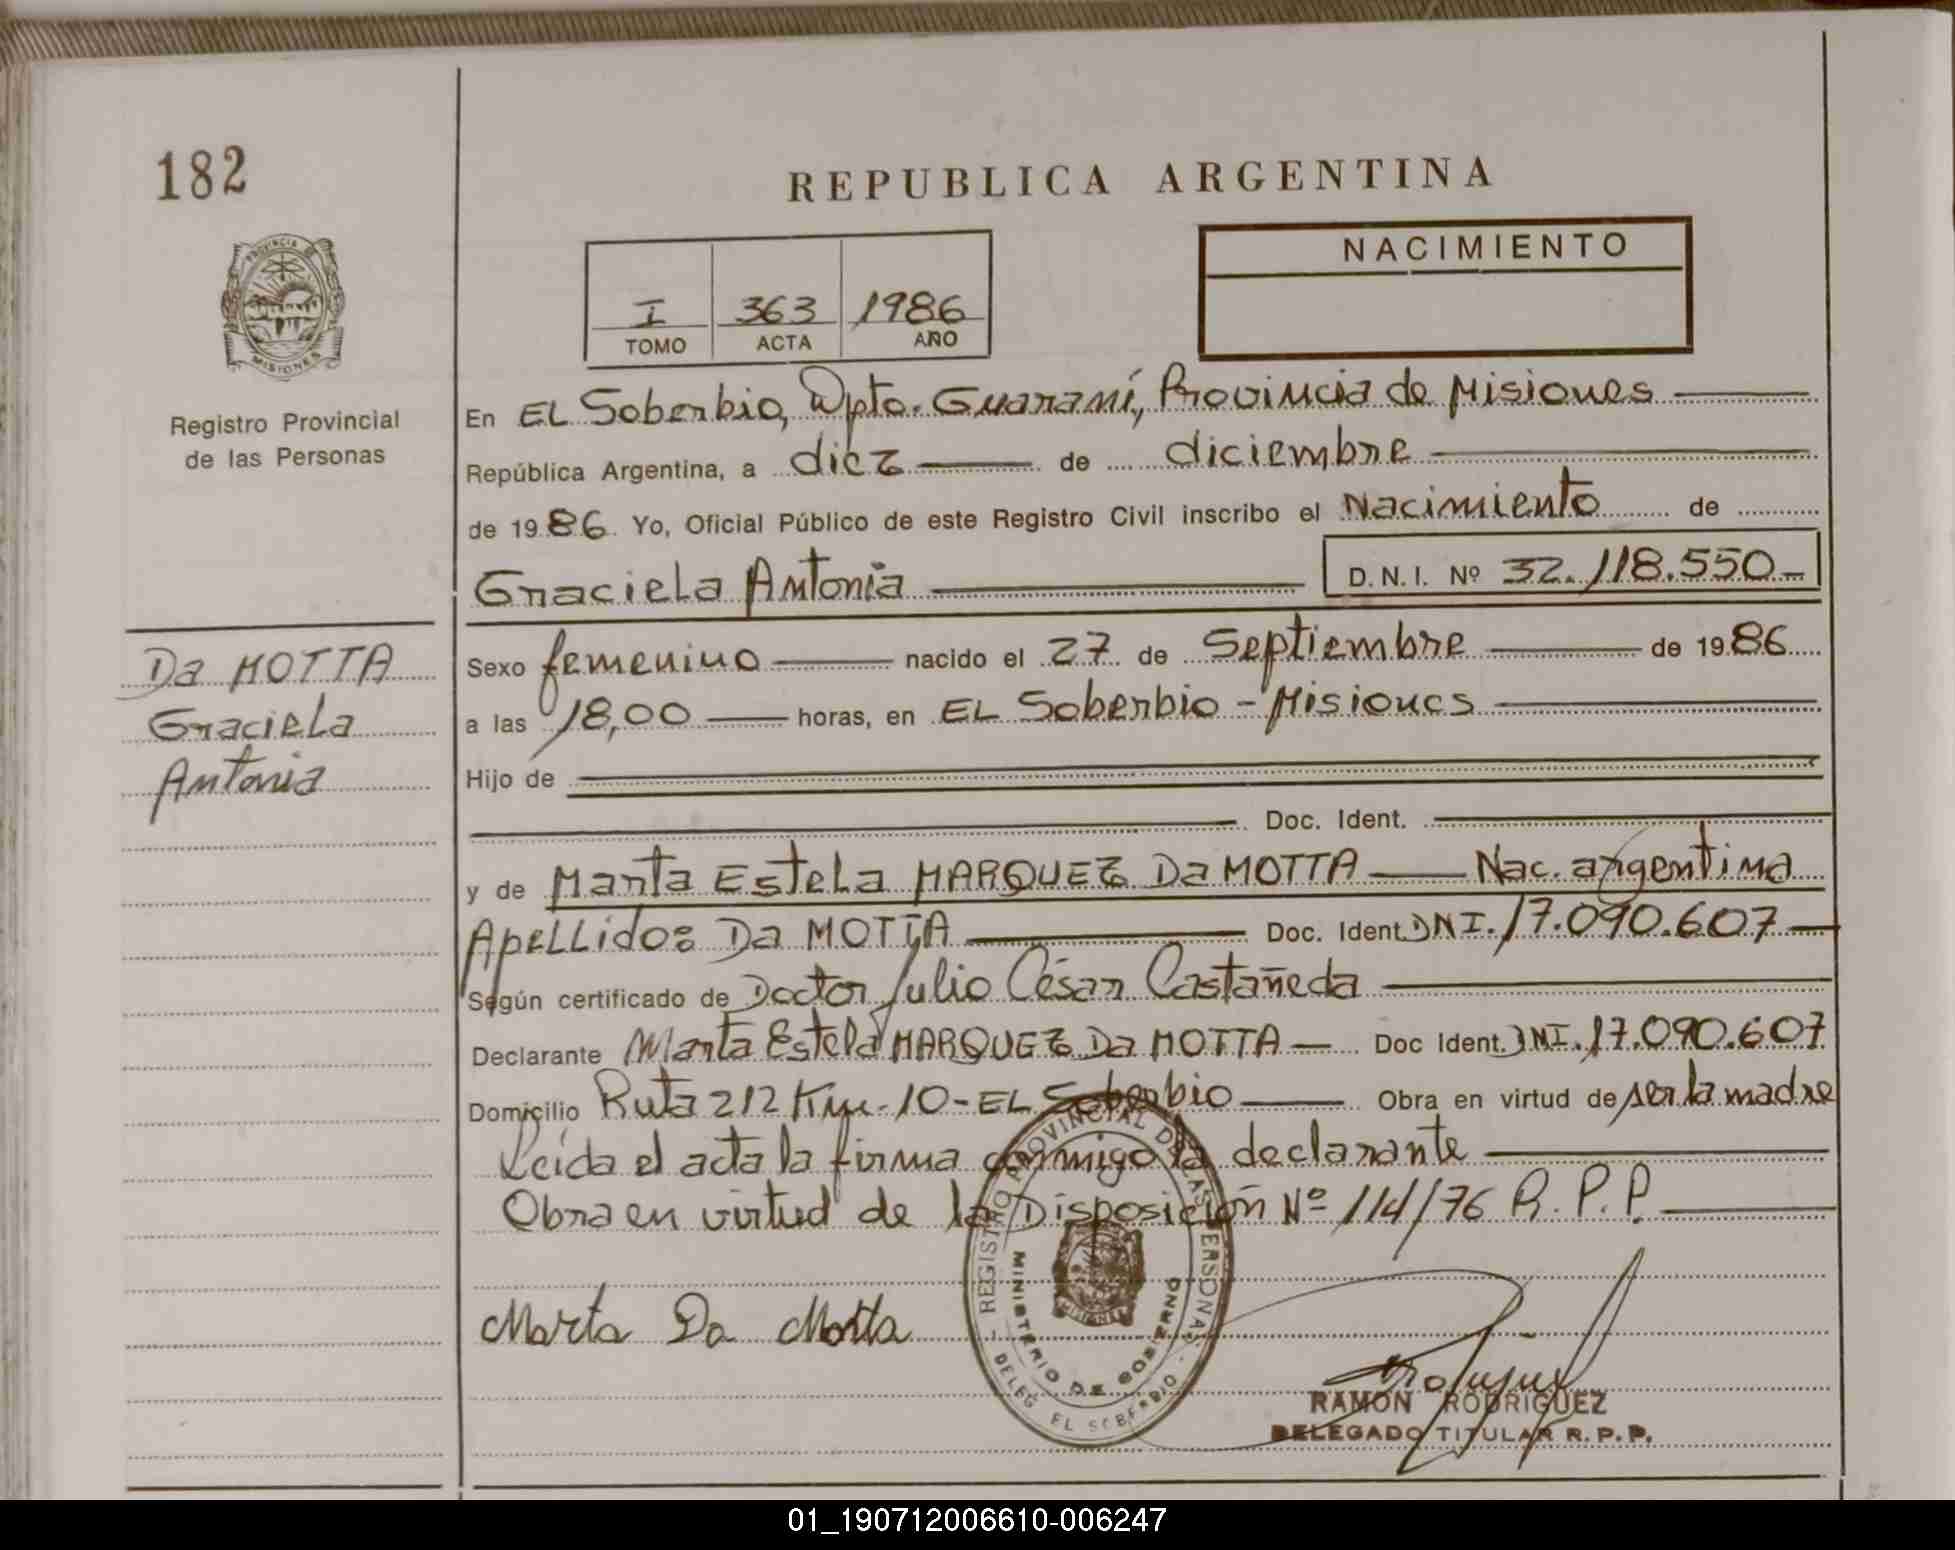 182
REPUBLICA ARGENTINA
PROVINCIA DE
MISIONES
Registro Provincial
de las Personas
I 363 1986
TOMO ACTA AÑO
NACIMIENTO
En EL Soberbio, Dpto. Guaraní, Provincia de Misiones
República Argentina, a diez de diciembre
de 1986 Yo, Oficial Público de este Registro Civil inscribo el Nacimiento de
Graciela Antonia D.N.I. Nº 32.118.550
Da MOTTA
Graciela
Antonia
Sexo femenino nacido el 27 de Septiembre de 1986
a las 18,00 horas, en EL Soberbio - Misiones
Hijo de
Doc. Ident.
y de Marta Estela MARQUEZ Da MOTTA Nac. argentina
Apellido: Da MOTTA Doc. Ident. DNI. 17.090.607
Según certificado de Doctor Julio César Castañeda
Declarante Marta Estela MARQUEZ Da MOTTA Doc Ident. DNI. 17.090.607
Domicilio Ruta 212 Km. 10 - EL Soberbio Obra en virtud de ser la madre
Leída el acta la firma conmigo la declarante
Obra en virtud de la Disposición Nº 114/76 R.P.P.
REGISTRO PROVINCIAL DE LAS PERSONAS
MINISTERIO DE GOBIERNO
DELEG. EL SOBERBIO
Marta Da Motta
RAMON RODRIGUEZ
DELEGADO TITULAR R.P.P.
01_190712006610-006247